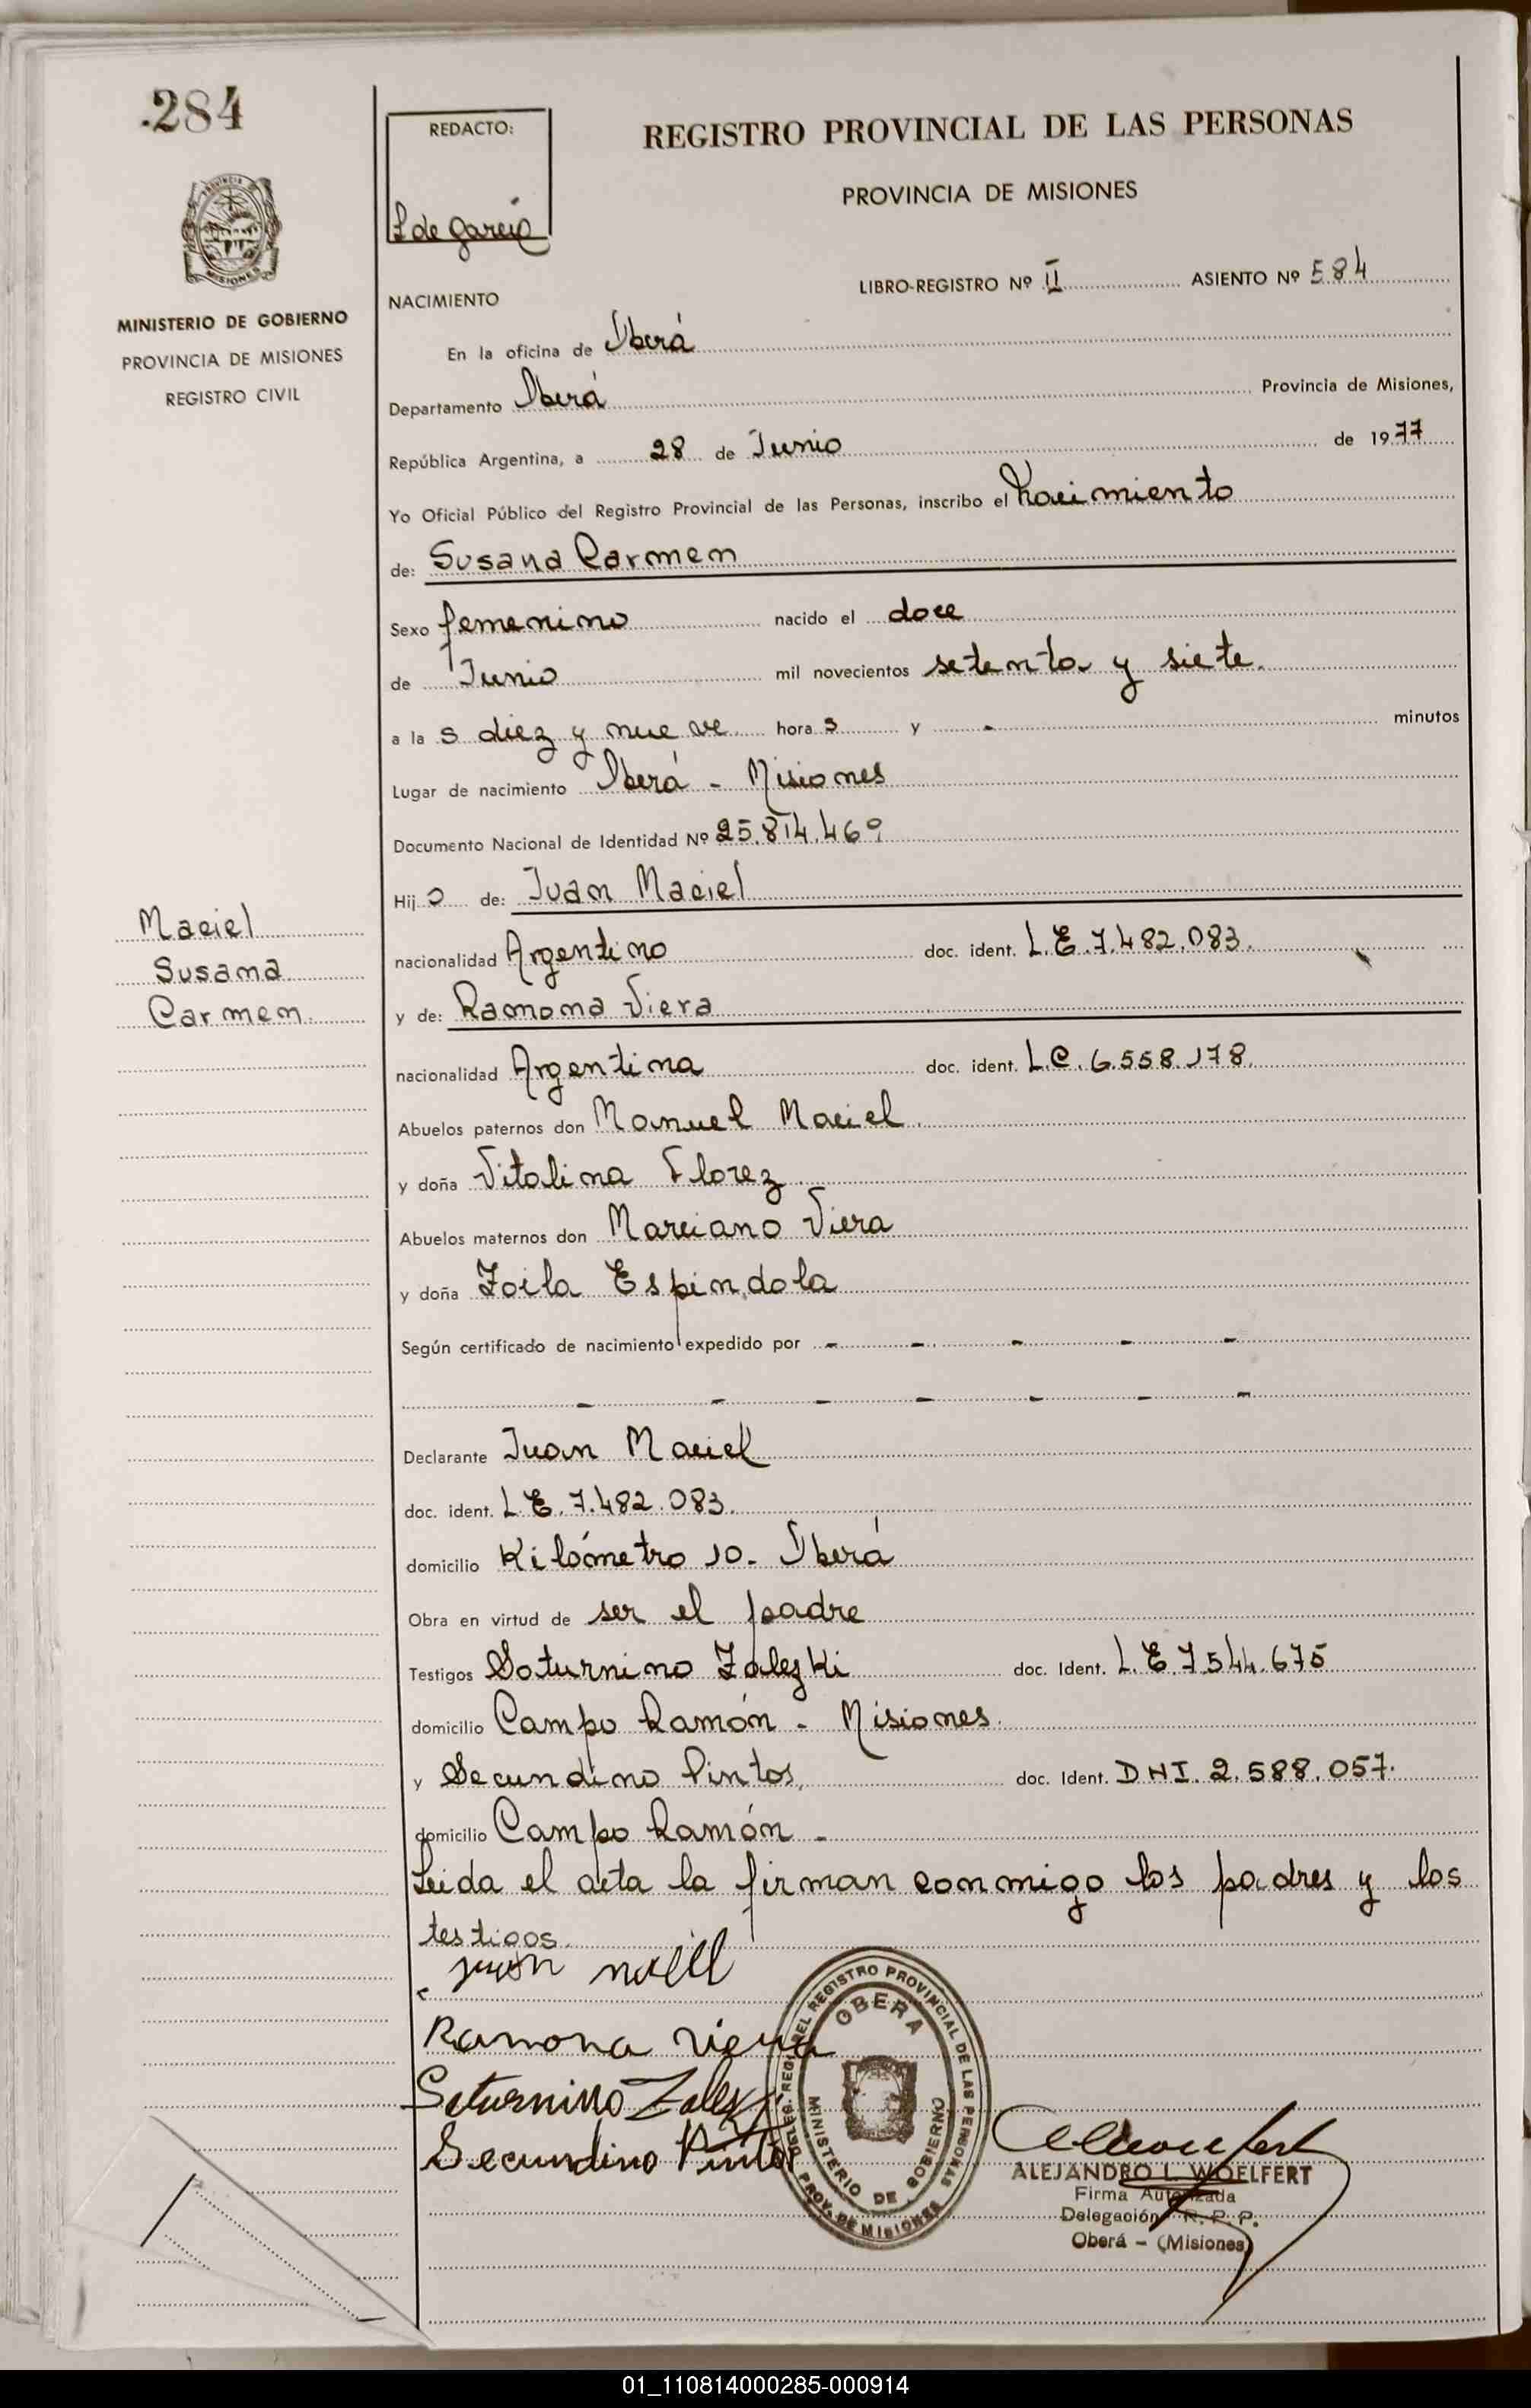 .284
REDACTO:
L de Garcia
REGISTRO PROVINCIAL DE LAS PERSONAS
PROVINCIA DE MISIONES
MINISTERIO DE GOBIERNO
PROVINCIA DE MISIONES
REGISTRO CIVIL
LIBRO-REGISTRO Nº II ASIENTO Nº 584
NACIMIENTO
En la oficina de Oberá
Departamento Oberá Provincia de Misiones,
República Argentina, a 28 de Junio de 1977
Yo Oficial Público del Registro Provincial de las Personas, inscribo el Nacimiento
de: Susana Carmen
Sexo femenino nacido el doce
de Junio mil novecientos setenta y siete.
a la s diez y nueve hora s y - minutos
Lugar de nacimiento Oberá - Misiones
Documento Nacional de Identidad Nº 25.814.469
Hij a de: Juan Maciel
Maciel
Susana
Carmen.
nacionalidad Argentino doc. ident. L.E.7.482.083.
y de: Ramona Viera
nacionalidad Argentina doc. ident. L.C. 6.558.178.
Abuelos paternos don Manuel Maciel.
y doña Vitalina Florez
Abuelos maternos don Marciano Viera
y doña Zoila Espindola
Según certificado de nacimiento expedido por - - - - -
- - - - - - -
Declarante Juan Maciel
doc. ident. L.E. 7.482.083.
domicilio Kilómetro 10. Oberá
Obra en virtud de ser el padre
Testigos Saturnino Zaleski doc. Ident. L.E. 7.544.675
domicilio Campo Ramón - Misiones.
y Secundino Pintos, doc. Ident. DNI. 2.588.057.
domicilio Campo Ramón -
Leida el acta la firman conmigo los padres y los
testigos.
Juan Maciel
Ramona Viera
Saturnino Zaleski
Secundino Pintos
DELEG. REG. DEL REGISTRO PROVINCIAL DE LAS PERSONAS
OBERA
MINISTERIO DE GOBIERNO
PROV. DE MISIONES
ALEJANDRO L. WOELFERT
Firma Autorizada
Delegación R. P. P.
Oberá - (Misiones)
01_110814000285-000914